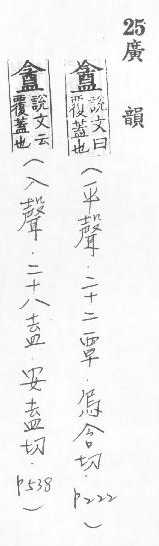 25廣韻
盦說文曰覆蓋也(平聲.二十二覃.烏含切.p222)
盦說文云覆蓋也(入聲.二十八盍.安盍切.p538)